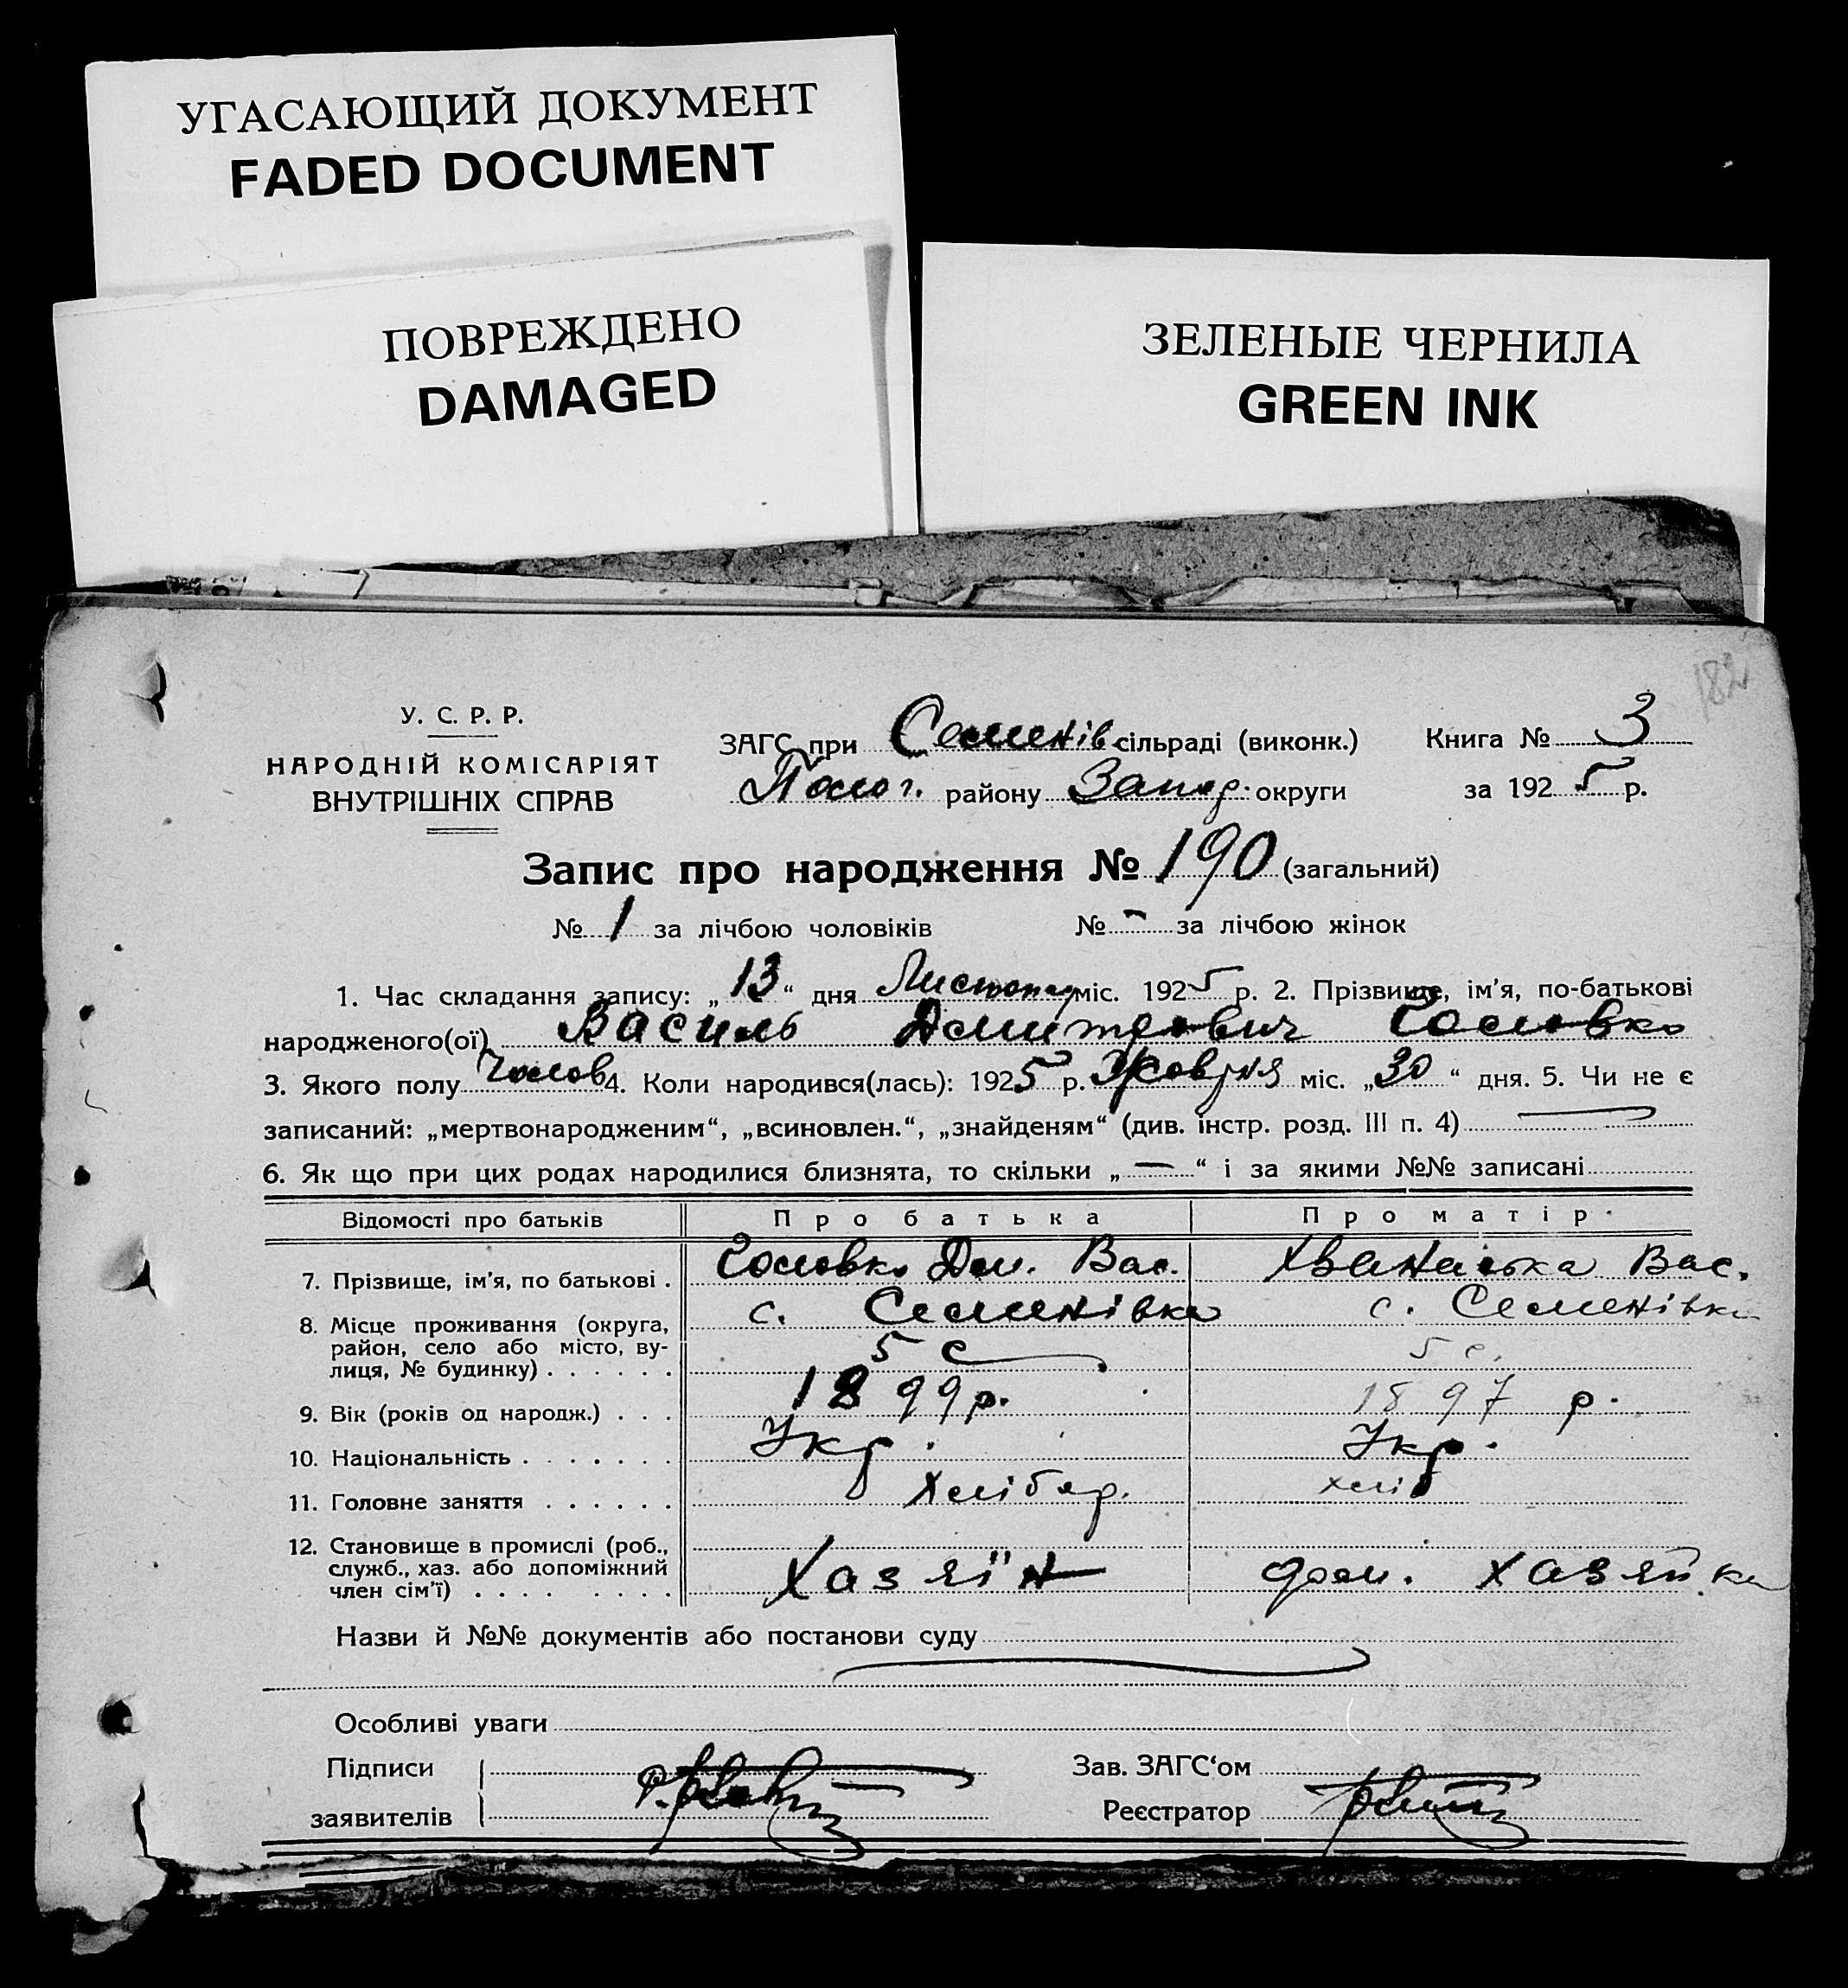 УГАСАЮЩИЙ ДОКУМЕНТ
FADED DOCUMENT
ПОВРЕЖДЕНО
DAMAGED
ЗЕЛЕНЫЕ ЧЕРНИЛА
GREEN INK
182
У. С. Р. Р.
НАРОДНІЙ КОМІСАРІЯТ
ВНУТРІШНІХ СПРАВ
ЗАГС при Семенів сільраді (виконк.) Книга № 3
Полог. району Запор. округи за 1925 р.
Запис про народження № 190 (загальний)
№ 1 за лічбою чоловіків № - за лічбою жінок
1. Час складання запису: „13“ дня Листопад міс. 1925 р. 2. Прізвище, ім’я, по-батькові
народженого(ої) Василь Дмитрович Головко
3. Якого полу Чолов 4. Коли народився(лась): 1925 р. Жовтня міс. „30“ дня. 5. Чи не є
записаний: „мертвонародженим“, „всиновлен.“, „знайденям“ (див. інстр. розд. III п. 4)
6. Як що при цих родах народилися близнята, то скільки „—“ і за якими №№ записані
Відомості про батьків Про батька Про матір
7. Прізвище, ім’я, по батькові . Головко Дм. Вас. Вас.
8. Місце проживання (округа, с. Семенівка с. Семенівка
район, село або місто, ву-
лиця, № будинку) . . . . . . 5 с 5 с.
9. Вік (років од народж.) . . . 1899 р. 1897 р.
10. Національність . . . . . . . Укр. Укр.
11. Головне заняття . . . . . . Хлібор. хліб
12. Становище в промислі (роб.,
служб., хаз. або допоміжний Хазяїн дом. хазяйка
член сім’ї) . . . . . . . .
Назви й №№ документів або постанови суду
Особливі уваги
Підписи Зав. ЗАГС‘ом
заявителів Реєстратор